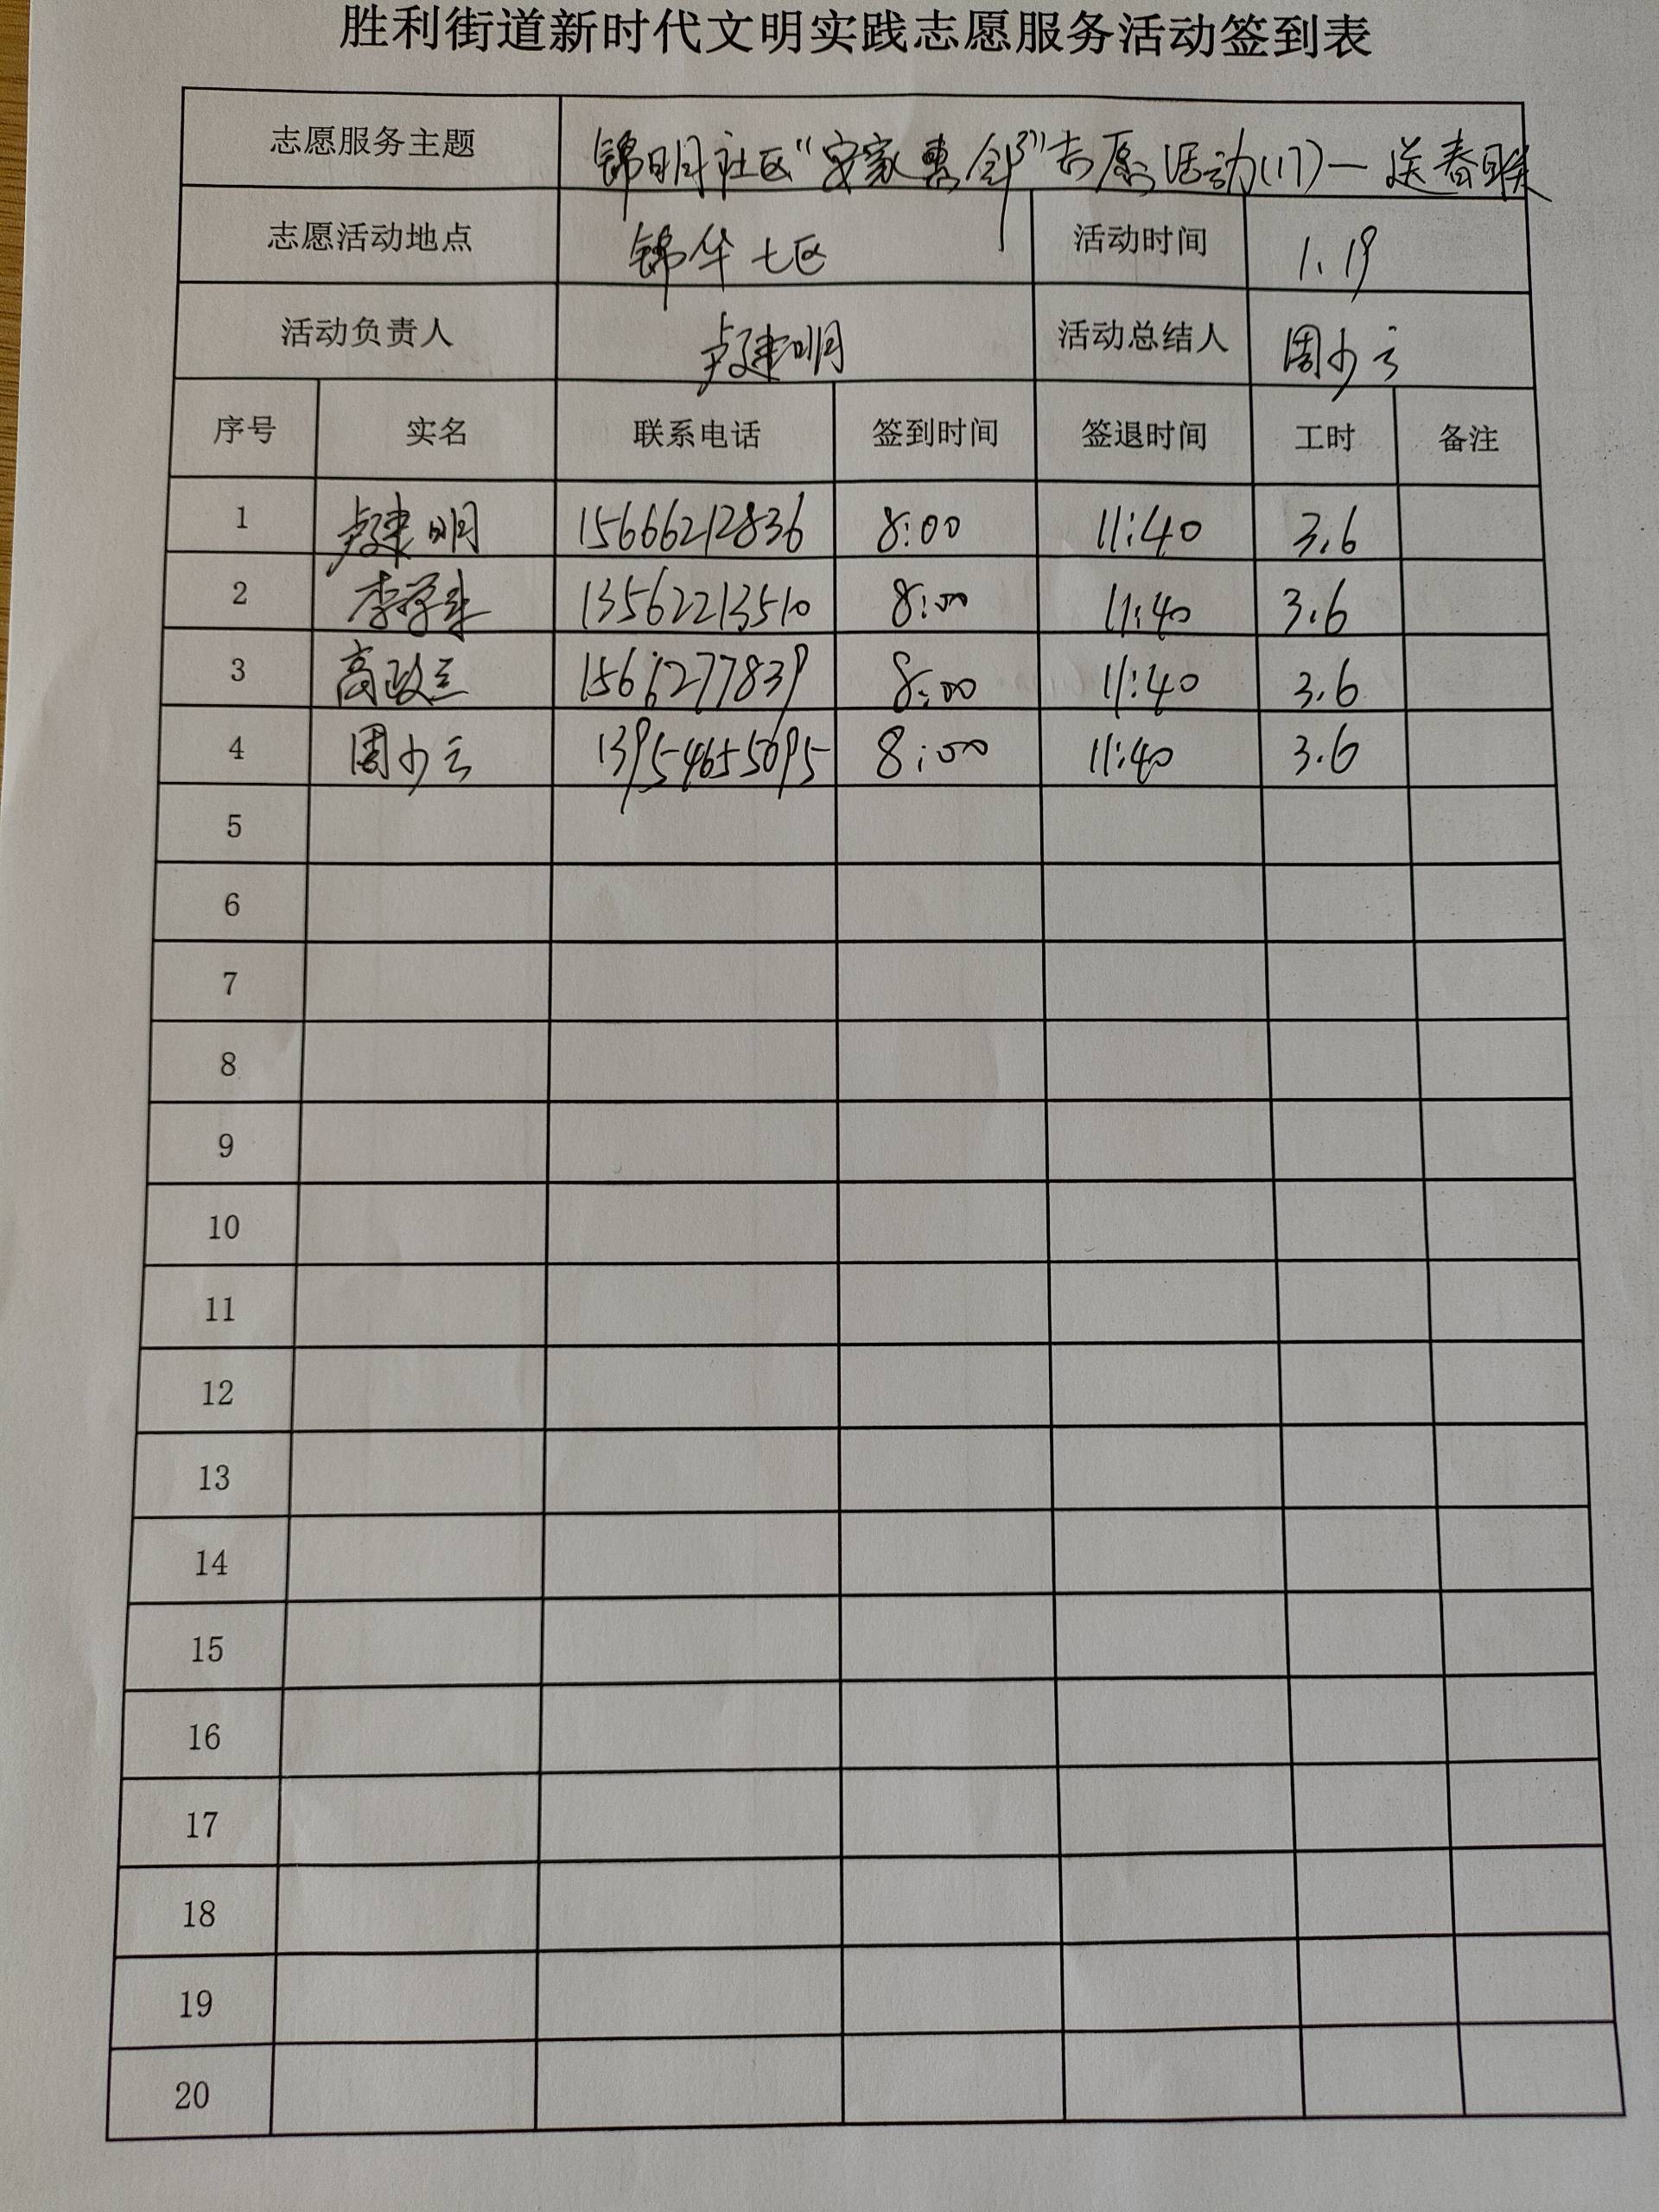 胜利街道新时代文明实践志愿服务活动签到表
志愿服务主题 锦明社区“安家惠邻”志愿活动(17)—送春联
志愿活动地点 锦华七区 活动时间 1.19
活动负责人 卢建明 活动总结人 周少云
序号 实名 联系电话 签到时间 签退时间 工时 备注
1 卢建明 15666212836 8:00 11:40 3.6
2 李学 13562213510 8:00 11:40 3.6
3 高政 15666277839 8:00 11:40 3.6
4 周少云 13954655695 8:00 11:40 3.6
5
6
7
8
9
10
11
12
13
14
15
16
17
18
19
20